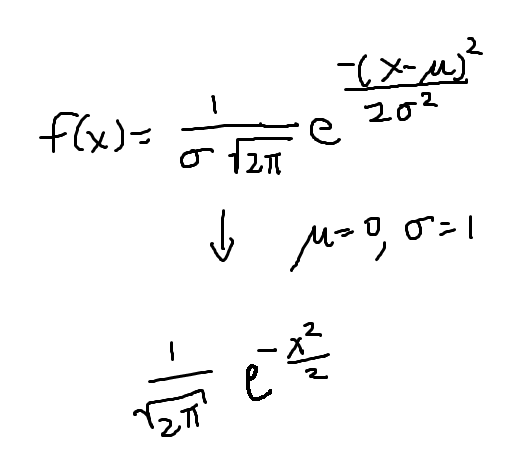 f(x)= 1/(σ√(2π)) e^(-(x-μ)²/(2σ²))
↓ μ=0, σ=1
1/√(2π) e^(-x²/2)